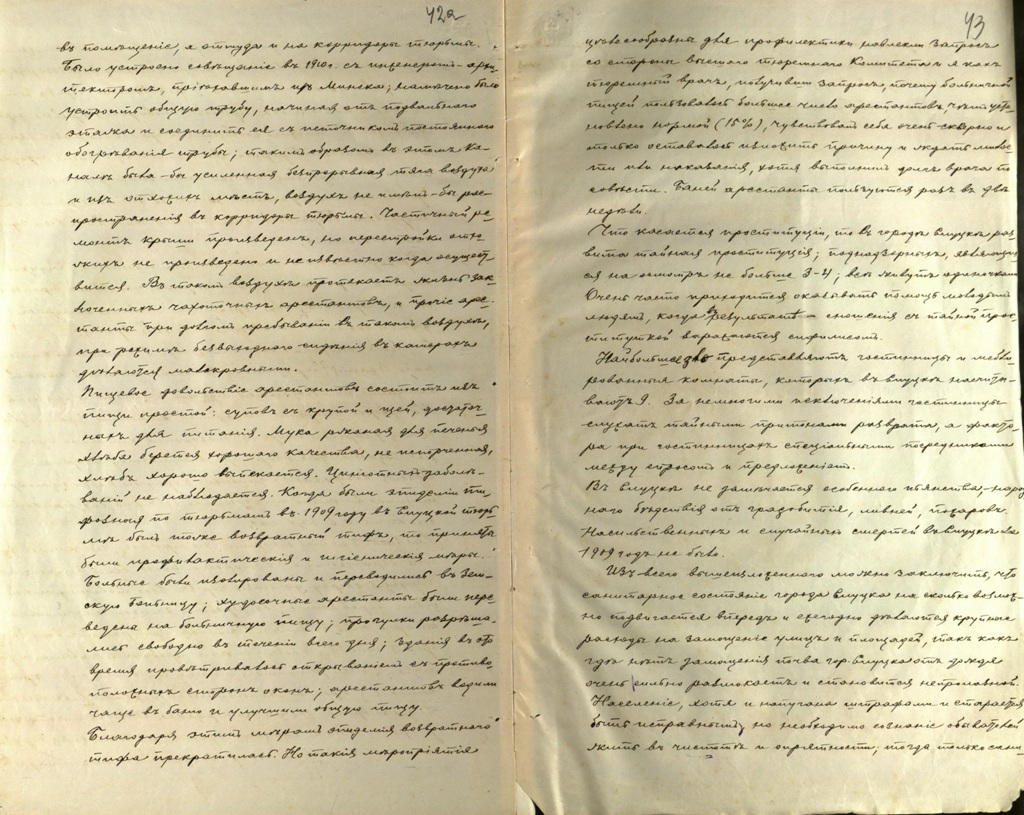 42а
въ помѣщеніе, а оттуда и на корридоры тюрьмы.
Было устроено совѣщаніе въ 1910 г. съ инженеромъ-архи-
текторомъ, пріѣхавшимъ изъ Минска; намѣчено было
устроить общую трубу, начиная отъ подвальнаго
этажа и соединить ея съ источникомъ постояннаго
обогрѣванія трубы; такимъ образомъ въ этомъ ка-
налѣ была-бы усиленная безпрерывная тяга воздуха
и изъ отхожихъ мѣстъ, воздухъ не имѣлъ-бы рас-
пространенія въ корридоры тюрьмы. Частичный ре-
монтъ крыши произведенъ, но перестройки отхо-
жихъ не произведено и не извѣстно когда осущест-
вится. Въ такомъ воздухѣ протекаетъ жизнь зак-
люченныхъ чахоточныхъ арестантовъ, и прочіе арес-
танты при долгомъ пребываніи въ такомъ воздухѣ,
при режимѣ безвыходнаго сидѣнія въ камерахъ
дѣлаются малокровными.
Пищевое довольствіе арестантовъ состоитъ изъ
пищи простой: суповъ съ крупой и щей, достаточ-
ныхъ для питанія. Мука ржаная для печенья
хлѣба берется хорошаго качества, не испорченная,
хлѣбъ хорошо выпекается. Цынготныхъ заболѣ-
ваній не наблюдается. Когда были эпидеміи ти-
фозныя по тюрьмамъ въ 1909 году въ Слуцкой тюрь-
мѣ былъ тоже возвратный тифъ, то приняты
были профилактическія и гигіеническія мѣры.
Больные были изолированы и переводились въ Зем-
скую больницу; худосочные арестанты были пере-
ведены на больничную пищу; прогулки разрѣша-
лись свободно въ теченіи всего дня; зданія въ это
время провѣтривались открываніемъ съ противо-
положныхъ сторонъ оконъ; арестантовъ водили
чаще въ баню и улучшили общую пищу.
Благодаря этимъ мѣрамъ эпидемія возвратнаго
тифа прекратилась. Но такія мѣропріятія
43
цѣлесообразны для профилактики навлекли запросъ
со стороны высшаго тюремнаго Комитета и я какъ
тюремный врачъ, получивши запросъ, почему больничной
пищей пользовалось большее число арестантовъ, чѣмъ уста-
новлено нормой (15%), чувствовалъ себя очень скверно и
только оставалось изложить причину и ждать милос-
ти или наказанія, хотя выполнилъ долгъ врача по
совѣсти. Баней арестанты пользуются разъ въ двѣ
недѣли.
Что касается проституціи, то въ городѣ Слуцкѣ раз-
вита тайная проституція; поднадзорныхъ, являющих-
ся на осмотръ не больше 3-4; всѣ живутъ одиночками.
Очень часто приходится оказывать помощь молодымъ
людямъ, когда въ результатѣ сношенія съ тайной прос-
титуткой заражаются сифилисомъ.
Наибольшее зло представляютъ гостинницы и мебли-
рованныя комнаты, которыхъ въ Слуцкѣ насчиты-
ваютъ 9. За немногими исключеніями гостинницы
служатъ тайными притонами разврата, а факто-
ра при гостинницахъ спеціальными посредниками
между спросомъ и предложеніемъ.
Въ Слуцкѣ не замѣчается особеннаго пьянства, народ-
наго бѣдствія отъ градобитія, ливней, пожаровъ.
Насильственныхъ и случайныхъ смертей въ Слуцкѣ за
1909 годъ не было.
Изъ всего вышеизложеннаго можно заключить, что
санитарное состояніе города Слуцка на сколько возмож-
но подвигается впередъ и ежегодно дѣлаются крупные
расходы на замощеніе улицъ и площадей, такъ какъ
гдѣ нѣтъ замощенія почва гор. Слуцка отъ дождя
очень сильно размокаетъ и становится непролазной.
Населеніе, хотя и напугана штрафами и старается
быть исправнымъ, но необходимо сознаніе обывателей
жить въ чистотѣ и опрятности; тогда только сани-